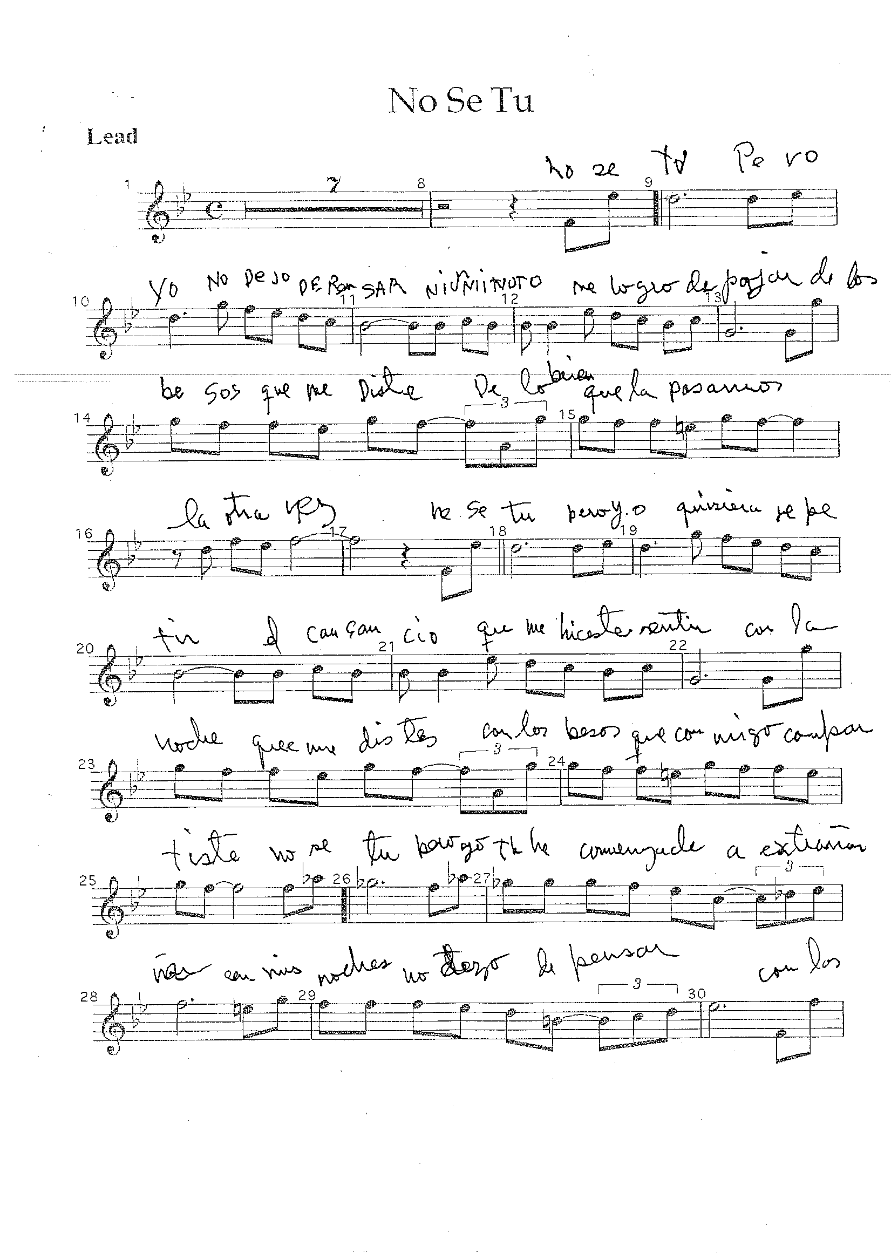 No Se Tu
Lead
no se tu Pe ro
1 7 8 9
YO NO DEJO DE PENSAR NI UN MINUTO me logro de pojar de los
10 11 12 13
be sos que me Diste De lo bien que la pasamos
14 3 15
la otra vez
no se tu pero yo quisiera re pe
16 17 18 19
tir el can san cio que me hiciste sentir con la
20 21 22
noche que me distes con los besos que con migo compar
23 3 24
tiste no se tu pero yo he comenzado a extrañar
25 26 27 3
con mis noches no dejo de pensar con los
28 29 3 30